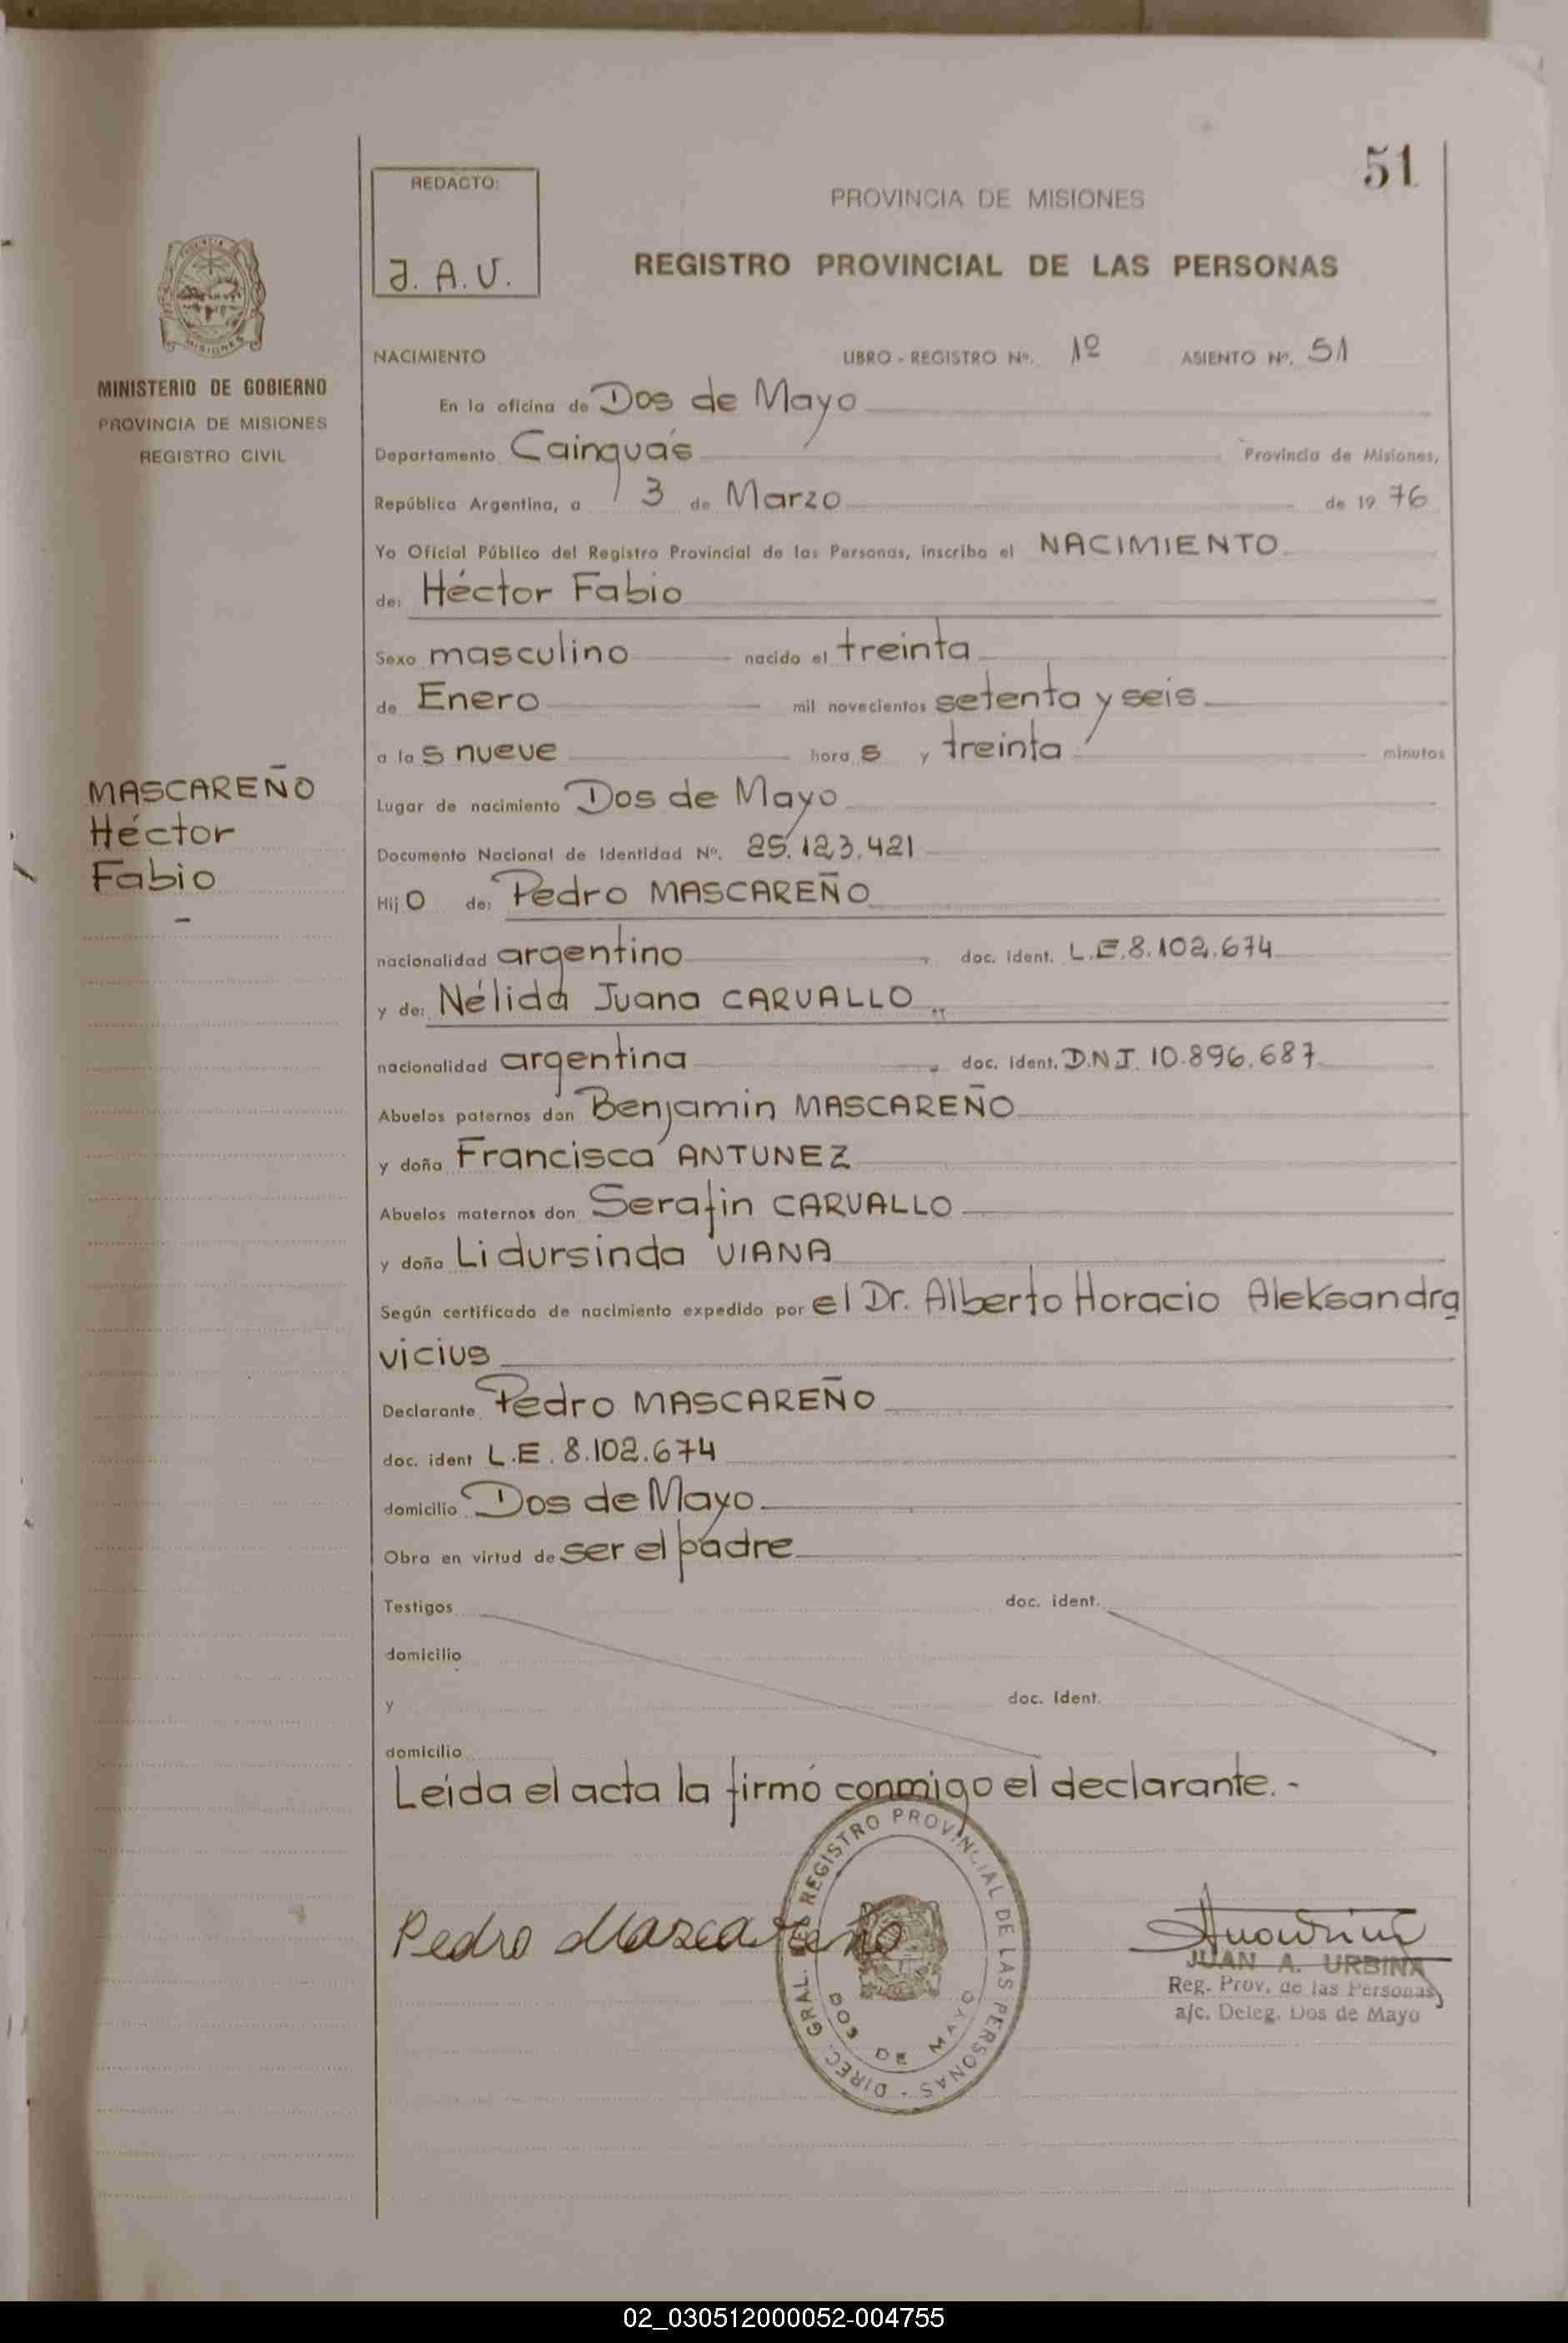 51
REDACTO:
J. A. U.
PROVINCIA DE MISIONES
REGISTRO PROVINCIAL DE LAS PERSONAS
MISIONES
MINISTERIO DE GOBIERNO
PROVINCIA DE MISIONES
REGISTRO CIVIL
NACIMIENTO LIBRO - REGISTRO Nº. 1º ASIENTO Nº. 51
En la oficina de Dos de Mayo
Departamento Cainguás Provincia de Misiones,
República Argentina, a 3 de Marzo de 19 76
Yo Oficial Público del Registro Provincial de las Personas, inscribo el NACIMIENTO
de: Héctor Fabio
Sexo masculino nacido el treinta
de Enero mil novecientos setenta y seis
a las nueve horas y treinta minutos
MASCAREÑO
Héctor
Fabio
Lugar de nacimiento Dos de Mayo
Documento Nacional de Identidad Nº. 25.123.421
Hijo de: Pedro MASCAREÑO
nacionalidad argentino doc. ident. L.E.8.102.674
y de: Nélida Juana CARVALLO
nacionalidad argentina doc. ident. D.N.I. 10.896.687
Abuelos paternos don Benjamin MASCAREÑO
y doña Francisca ANTUNEZ
Abuelos maternos don Serafin CARVALLO
y doña Lidursinda VIANA
Según certificado de nacimiento expedido por el Dr. Alberto Horacio Aleksandra
vicius
Declarante Pedro MASCAREÑO
doc. ident L.E. 8.102.674
domicilio Dos de Mayo
Obra en virtud de ser el padre
Testigos doc. ident.
domicilio
y doc. Ident.
domicilio
Leída el acta la firmó conmigo el declarante.-
Pedro Mascareño
DIREC. GRAL. DEL REGISTRO PROVINCIAL DE LAS PERSONAS -
DOS DE MAYO
JUAN A. URBINA
Reg. Prov. de las Personas
a/c. Deleg. Dos de Mayo
02_030512000052-004755